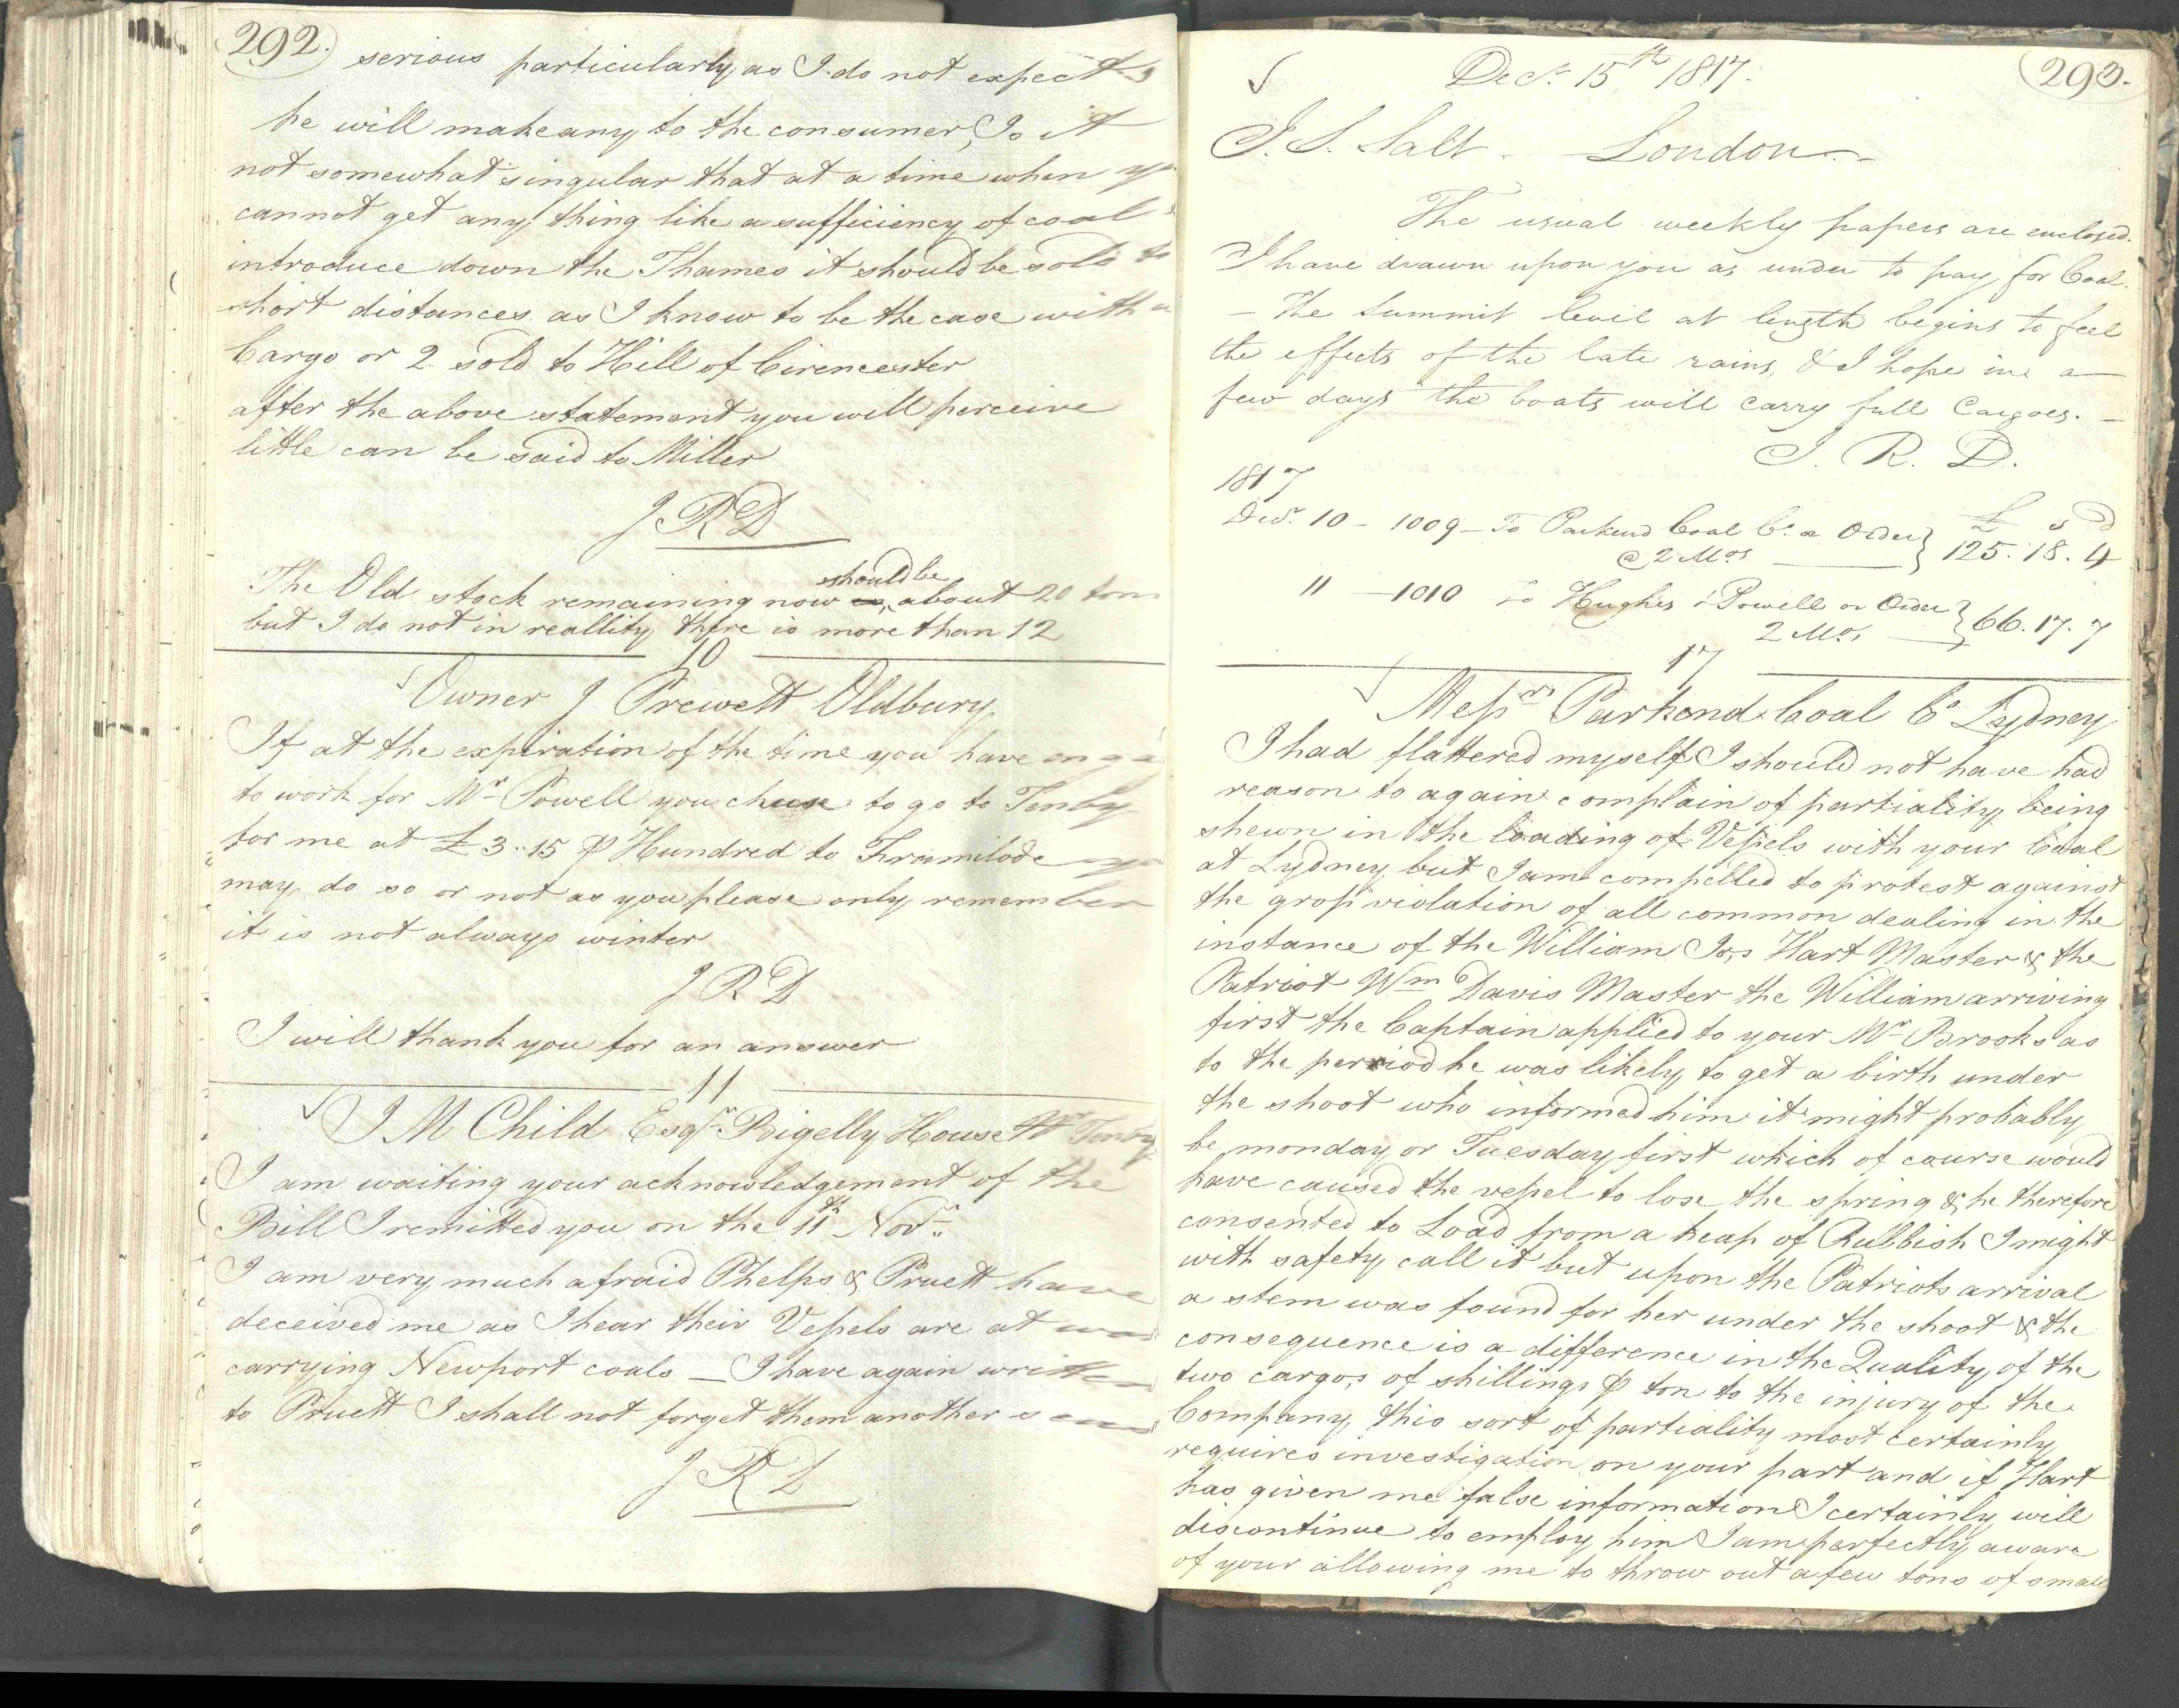 292.
serious particularly as I do not expect
he will make any to the consumer, Is it
not somewhat singular that at a time when
cannot get any thing like a sufficiency of coal
introduce down the Thames it should be sold to
short distances as I know to be the case with a
Cargo or 2 sold to Hill of Cirencester
after the above statement you will perceive
little can be said to Miller
JRD
should be
The Old stock remaining now about 20 tons
but I do not in reallity there is more than 12
10
Owner J Prewett Oldbury
If at the expiration of the time you have
to work for Mr Powell you chuse to go to Tenby
for me at £3..15 ⅌ Hundred to Framilode
may do so or not as you please only remember
it is not always winter
JRD
I will thank you for an answer
11
J M Child Esqr Bigelly House Nr Tenby
I am waiting your acknowledgement of the
Bill I remitted you on the 11th Novr
I am very much afraid Phelps & Pruett have
deceived me as I hear their Vessels are at
carrying Newport coals – I have again written
to Pruett I shall not forget them another
JRD
293.
Decr 15th 1817.
J. S. Salt. London
The usual weekly papers are enclosed.
I have drawn upon you as under to pay for Coal.
– The Summit level at length begins to feel
the effects of the late rains, & I hope in a
few days the boats will carry full Cargoes. –
J. R. D.
1817
£ s d
Decr. 10 – 1009 – To Parkend Coal Co. or Order } 125. 18. 4
@ 2 Mos
11 – 1010 To Hughes & Powell or Order } 66. 17. 7
2 Mos
17
Messrs Parkend Coal Co Lydney
I had flattered myself I should not have had
reason to again complain of partiality being
shewn in the loading of Vessels with your Coal
at Lydney but I am compelled to protest against
the gross violation of all common dealing in the
instance of the William Jas Hart Master & the
Patriot Wm Davis Master the William arriving
first the Captain applied to your Mr Brooks as
to the period he was likely to get a birth under
the shoot who informed him it might probably
be monday or Tuesday first which of course would
have caused the vessel to lose the spring & he therefore
consented to Load from a heap of Rubbish I might
with safety call it but upon the Patriots arrival
a stem was found for her under the shoot & the
consequence is a difference in the Quality of the
two cargos of shillings ⅌ ton to the injury of the
Company, this sort of partiality most certainly
requires investigation on your part and if Hart
has given me false information I certainly will
discontinue to employ him I am perfectly aware
of your allowing me to throw out a few tons of small